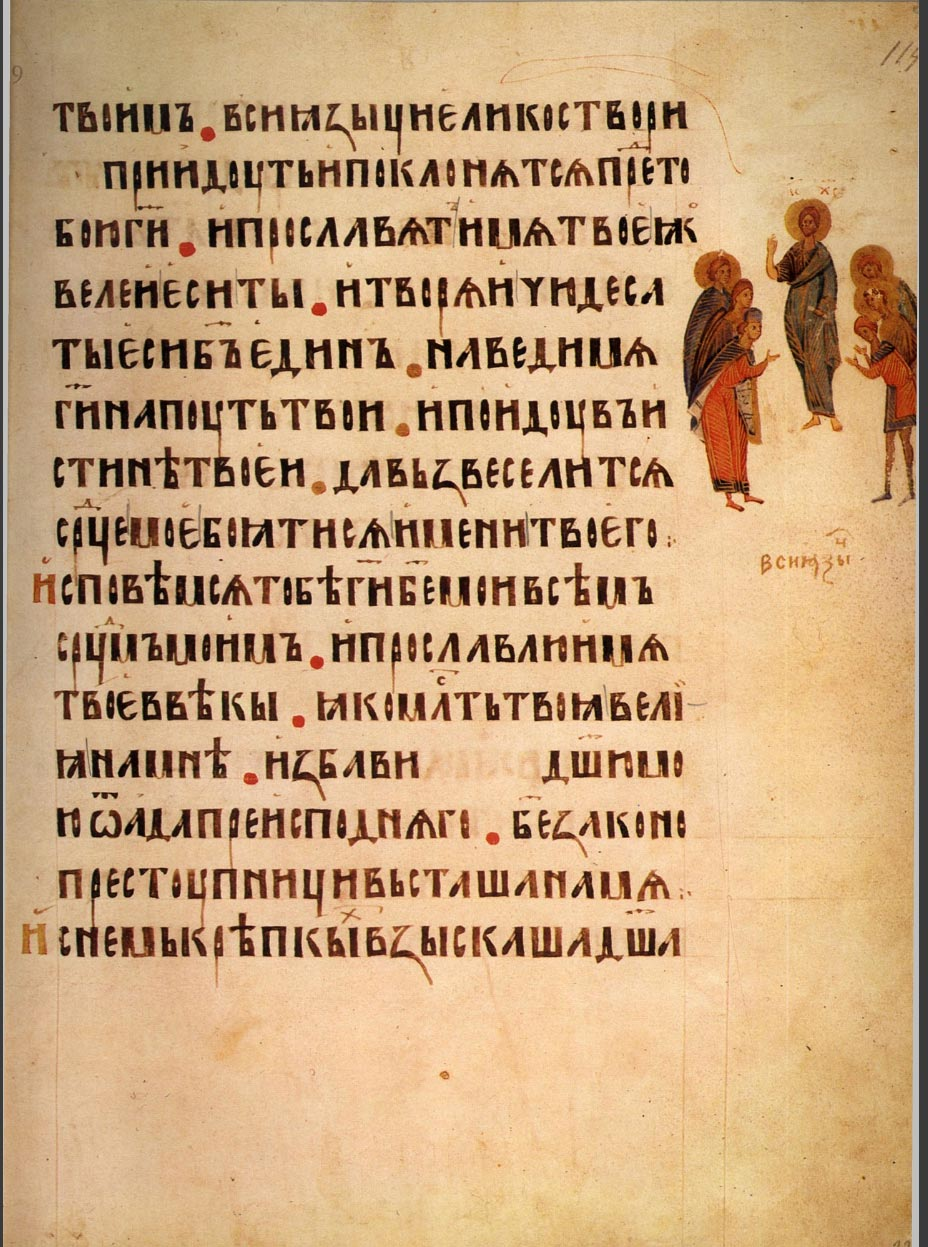 твоимъ . вси ꙗзыци елико створи
приидоуть и поклонѧтсѧ прѣ то
бою ги . и прославѧт имѧ твое ꙗк
велеи еси ты . и творѧи чюдеса
ты еси бъ единъ . наведи мѧ
ги на поуть твои . и поидоу въ и
стинѣ твоеи . да възвеселитсѧ
срдце мое боꙗтисѧ имени твоего :
исповѣмсѧ тобѣ ги бе мои всѣмъ
срдцмъ моимъ . и прославлю имѧ
твое в вѣкы . ꙗко млсть твоꙗ вели
ꙗ на мнѣ . избави дшю мо
ю ѿ ада преисподнѧго . безаконо
престоупници въсташа на мѧ :
и снемь крѣпкыхъ взыскаша дша
ис хс
вси ꙗзыци